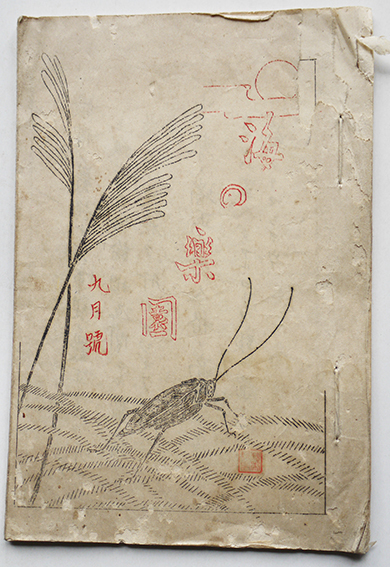 の樂園
九月號